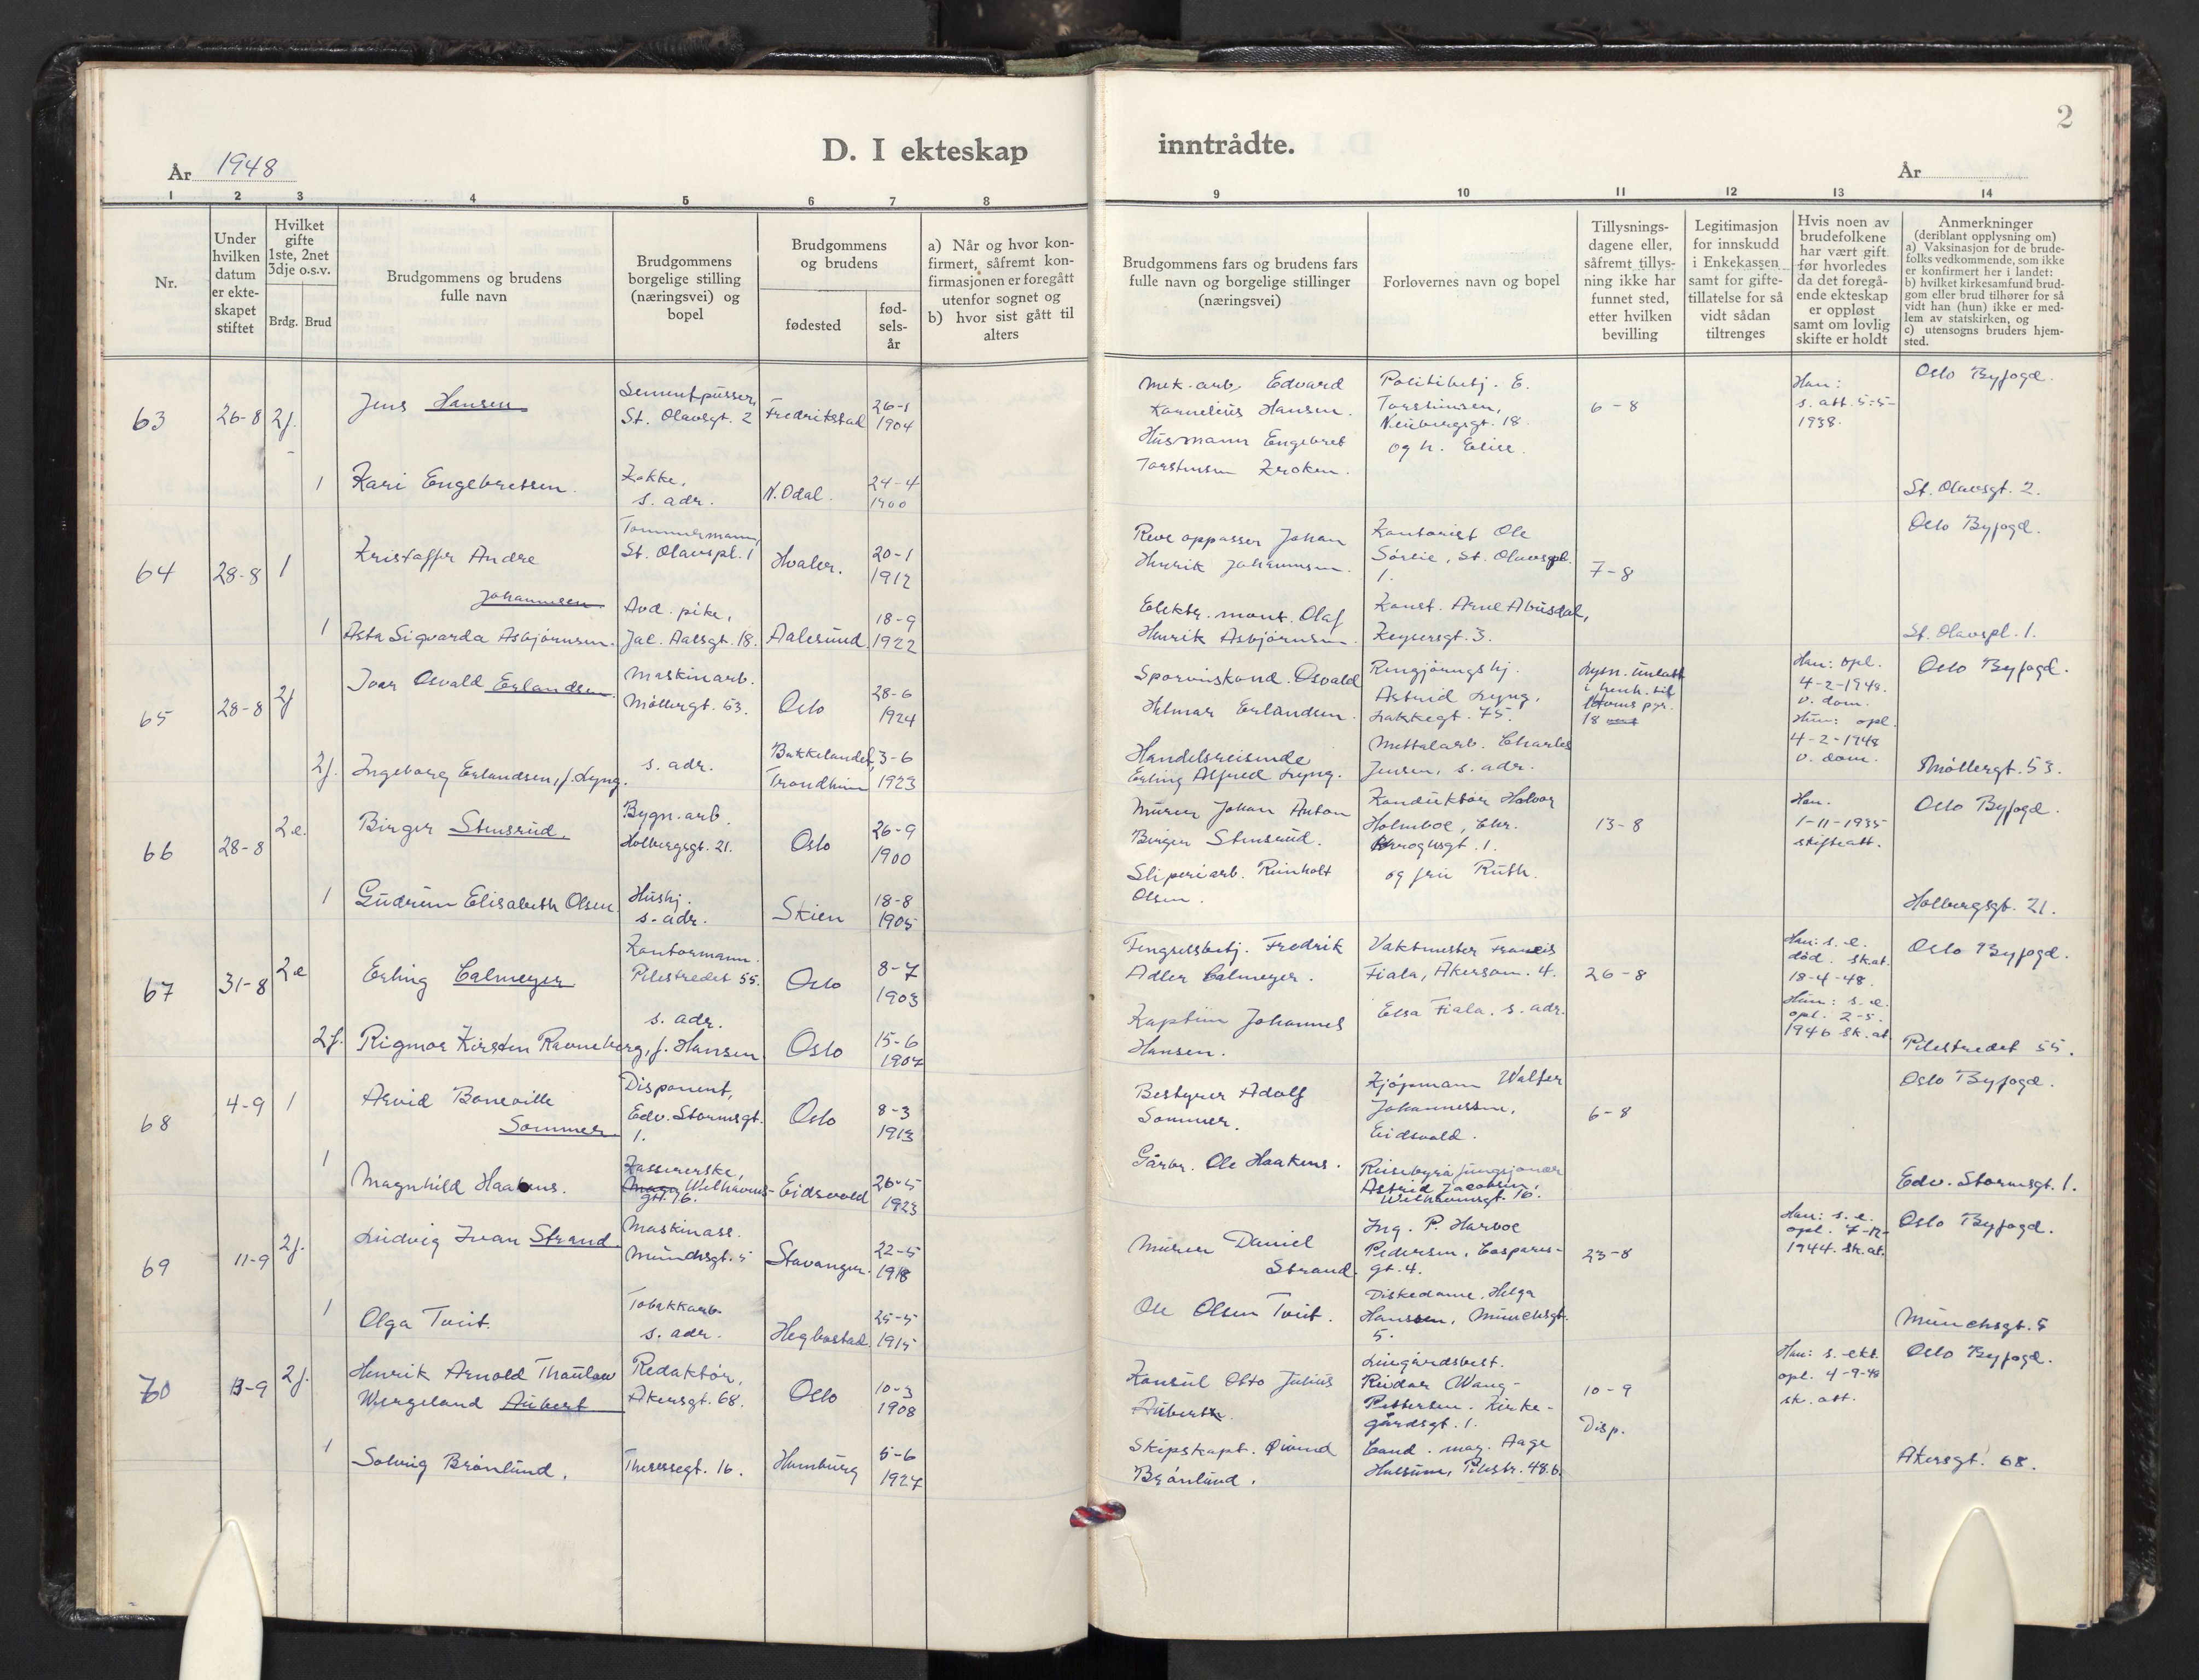 2
D. I ekteskap inntrådte.
År 1948
År
1 2 3 4 5 6 7 8 9 10 11 12 13 14
Nr.
Under
hvilken
datum
er ekte-
skapet
stiftet
Hvilket
gifte
1ste, 2net
3dje o.s.v.
Brdg. Brud
Brudgommens og brudens
fulle navn
Brudgommens
borgelige stilling
(næringsvei) og
bopel
Brudgommens
og brudens
fødested
fød-
sels-
år
a) Når og hvor kon-
firmert, såfremt kon-
firmasjonen er foregått
utenfor sognet og
b) hvor sist gått til
alters
Brudgommens fars og brudens fars
fulle navn og borgelige stillinger
(næringsvei)
Forlovernes navn og bopel
Tillysnings-
dagene eller,
såfremt tillys-
ning ikke har
funnet sted,
etter hvilken
bevilling
Legitimasjon
for innskudd
i Enkekassen
samt for gifte-
tillatelse for så
vidt sådan
tiltrenges
Hvis noen av
brudefolkene
har vært gift
før hvorledes
da det foregå-
ende ekteskap
er oppløst
samt om lovlig
skifte er holdt
Anmerkninger
(deriblant opplysning om)
a) Vaksinasjon for de brude-
folks vedkommende, som ikke
er konfirmert her i landet:
b) hvilket kirkesamfund brud-
gom eller brud tilhører for så
vidt han (hun) ikke er med-
lem av statskirken, og
c) utensogns bruders hjem-
sted.
63
26-8
2f.
Jens Hansen
Sementpusser,
St. Olavsgt. 2
Fredrikstad
26-1
1904
Mek.arb. Edvard
Kornelius Hansen.
Politibetj. E.
Torstensen,
Neubergsgt. 18.
og h. Elise.
6-8
Han:
s. att. 5-5-
1938.
Oslo Byfogd.
1
Kari Engebretsen.
Kokke,
s. adr.
N. Odal.
24-4
1900
Husmann Engebret
Torstensen Kroken.
St. Olavsgt. 2.
64
28-8
1
Kristoffer Andre
Johannesen
Tømmermann,
St. Olavspl. 1
Hvaler.
20-1
1912
Reveoppasser Johan
Henrik Johannesen.
Kontorist Ole
Sørlie, St. Olavspl.
1.
7-8
Oslo Byfogd.
1
Asta Sigvarda Asbjørnsen.
Avd. pike,
Jac. Aallsgt. 18.
Aalesund
18-9
1922
Elektr. mont. Olaf
Henrik Asbjørnsen.
Konst. Arne Abusdal,
Keysersgt. 3.
St. Olavspl. 1.
65
28-8
2f
Ivar Osvald Erlandsen.
Maskinarb.
Møllergt. 53.
Oslo
28-6
1924
Sporveiskond. Osvald
Helmar Erlandsen.
Rengjøringshj.
Astrid Lyng,
Lakkegt. 75.
lysn. unlatt
i henh. til
18
Han: opl.
4-2-1948.
v. dom.
Oslo Byfogd.
2f.
Ingeborg Erlandsen, f. Lyng.
s. adr.
Bakkelandet,
Trondheim
3-6
1923
Handelsreisende
Erling Alfred Lyng.
Metallarb. Charles
Jensen, s. adr.
Hun: opl.
4-2-1948
v. dom.
Møllergt. 53.
66
28-8
2e.
Birger Stensrud.
Bygn.arb.
Holbergsgt. 21.
Oslo
26-9
1900
Murer Johan Anton
Birger Stensrud.
Konduktør Halvor
Holmboe, Chr.
Kroghsgt. 1.
og fru Ruth.
13-8
Han.
1-11-1935
skifteatt.
Oslo Byfogd.
1
Gudrun Elisabeth Olsen.
Hushj.
s. adr.
Skien
18-8
1905
Sliperiarb. Reinholt
Olsen.
Holbergsgt. 21.
67
31-8
2e
Erling Calmeyer
Kontormann.
Pilestredet 55.
Oslo
8-7
1903
Fengselsbetj. Fredrik
Adler Calmeyer.
Vaktmester Francis
Fiala, Akersvn. 4.
26-8
Han: s. e.
død. sk.at.
18-4-48.
Oslo Byfogd.
2f.
Rigmor Kirsten Ravneberg, f. Hansen
s. adr.
Oslo
15-6
1907
Kaptein Johannes
Hansen.
Elsa Fiala. s. adr.
Hun: s. e.
opl. 2-5.
1946 sk. at.
Pilestredet 55.
68
4-9
1
Arvid Boneville
Sommer.
Disponent,
Edv. Stormsgt.
1.
Oslo
8-3
1913
Bestyrer Adolf
Sommer.
Kjøpmann Walter
Johannessen,
Eidsvold.
6-8
Oslo Byfogd.
1
Magnhild Haakens.
Kassererske,
Welhavens-
gt. 16.
Eidsvold
26-5
1923
Gårbr. Ole Haakens.
Reisebyråfungsjonær
Astrid Jacobsen,
Welhavensgt. 16.
Edv. Stormsgt. 1.
69
11-9
2f.
Ludvig Ivan Strand
Maskinass.
Munchsgt. 5
Stavanger.
22-5
1918
Murer Daniel
Strand.
Ing. P. Harboe
Pedersen, Caspares-
gt. 4.
23-8
Han: s. e.
opl. 7-12-
1944. sk.at.
Oslo Byfogd.
1
Olga Tveit.
Tobakkarb.
s. adr.
Hegbostad.
25-5
1915
Ole Olsen Tveit.
Diskedame, Helga
Hanssen, Munchsgt.
5.
Munchsgt. 5
70
13-9
2f.
Henrik Arnold Thaulow
Wergeland Aubert
Redaktør,
Akersgt. 68.
Oslo
10-3
1908
Konsul Otto Julius
Aubert.
Reidar Wang-
Pettersen. Kirke-
gårdsgt. 1.
10-9
Disp.
Han: s. ekt.
opl. 4-9-48
sk. att.
Oslo Byfogd.
1
Solveig Brønlund.
Theresegt. 16.
Hamburg
5-6
1927
Skipskapt. Øivind
Brønlund.
Cand. mag. Aage
Hulsund, Pilestr. 48b.
Akersgt. 68.